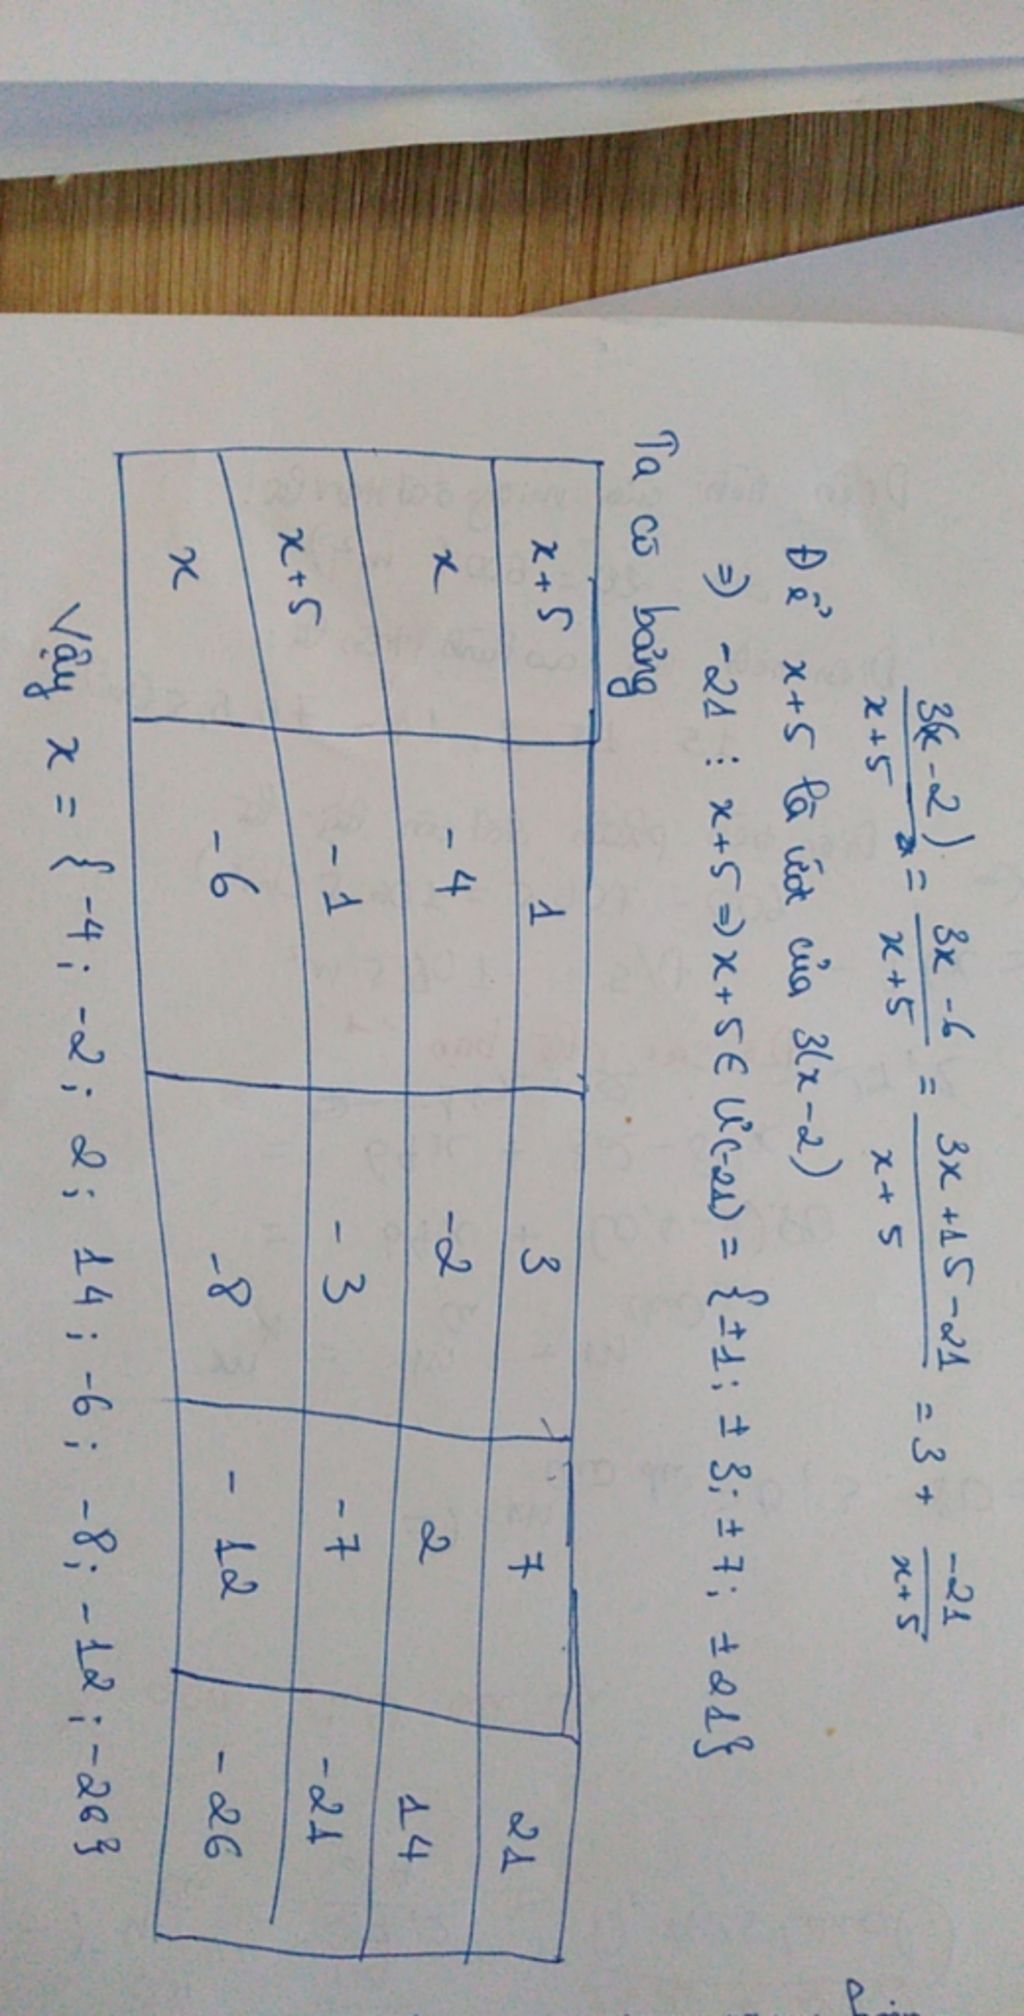 3(x-2)/x+5 = 3x-6/x+5 = 3x+15-21/x+5 = 3 + -21/x+5
Để x+5 là ước của 3(x-2)
=> -21 ⋮ x+5 => x+5 ∈ Ư(-21) = {±1; ±3; ±7; ±21}
Ta có bảng
x+5 1 3 7 21
x -4 -2 2 14
x+5 -1 -3 -7 -21
x -6 -8 -12 -26
Vậy x = {-4; -2; 2; 14; -6; -8; -12; -26}